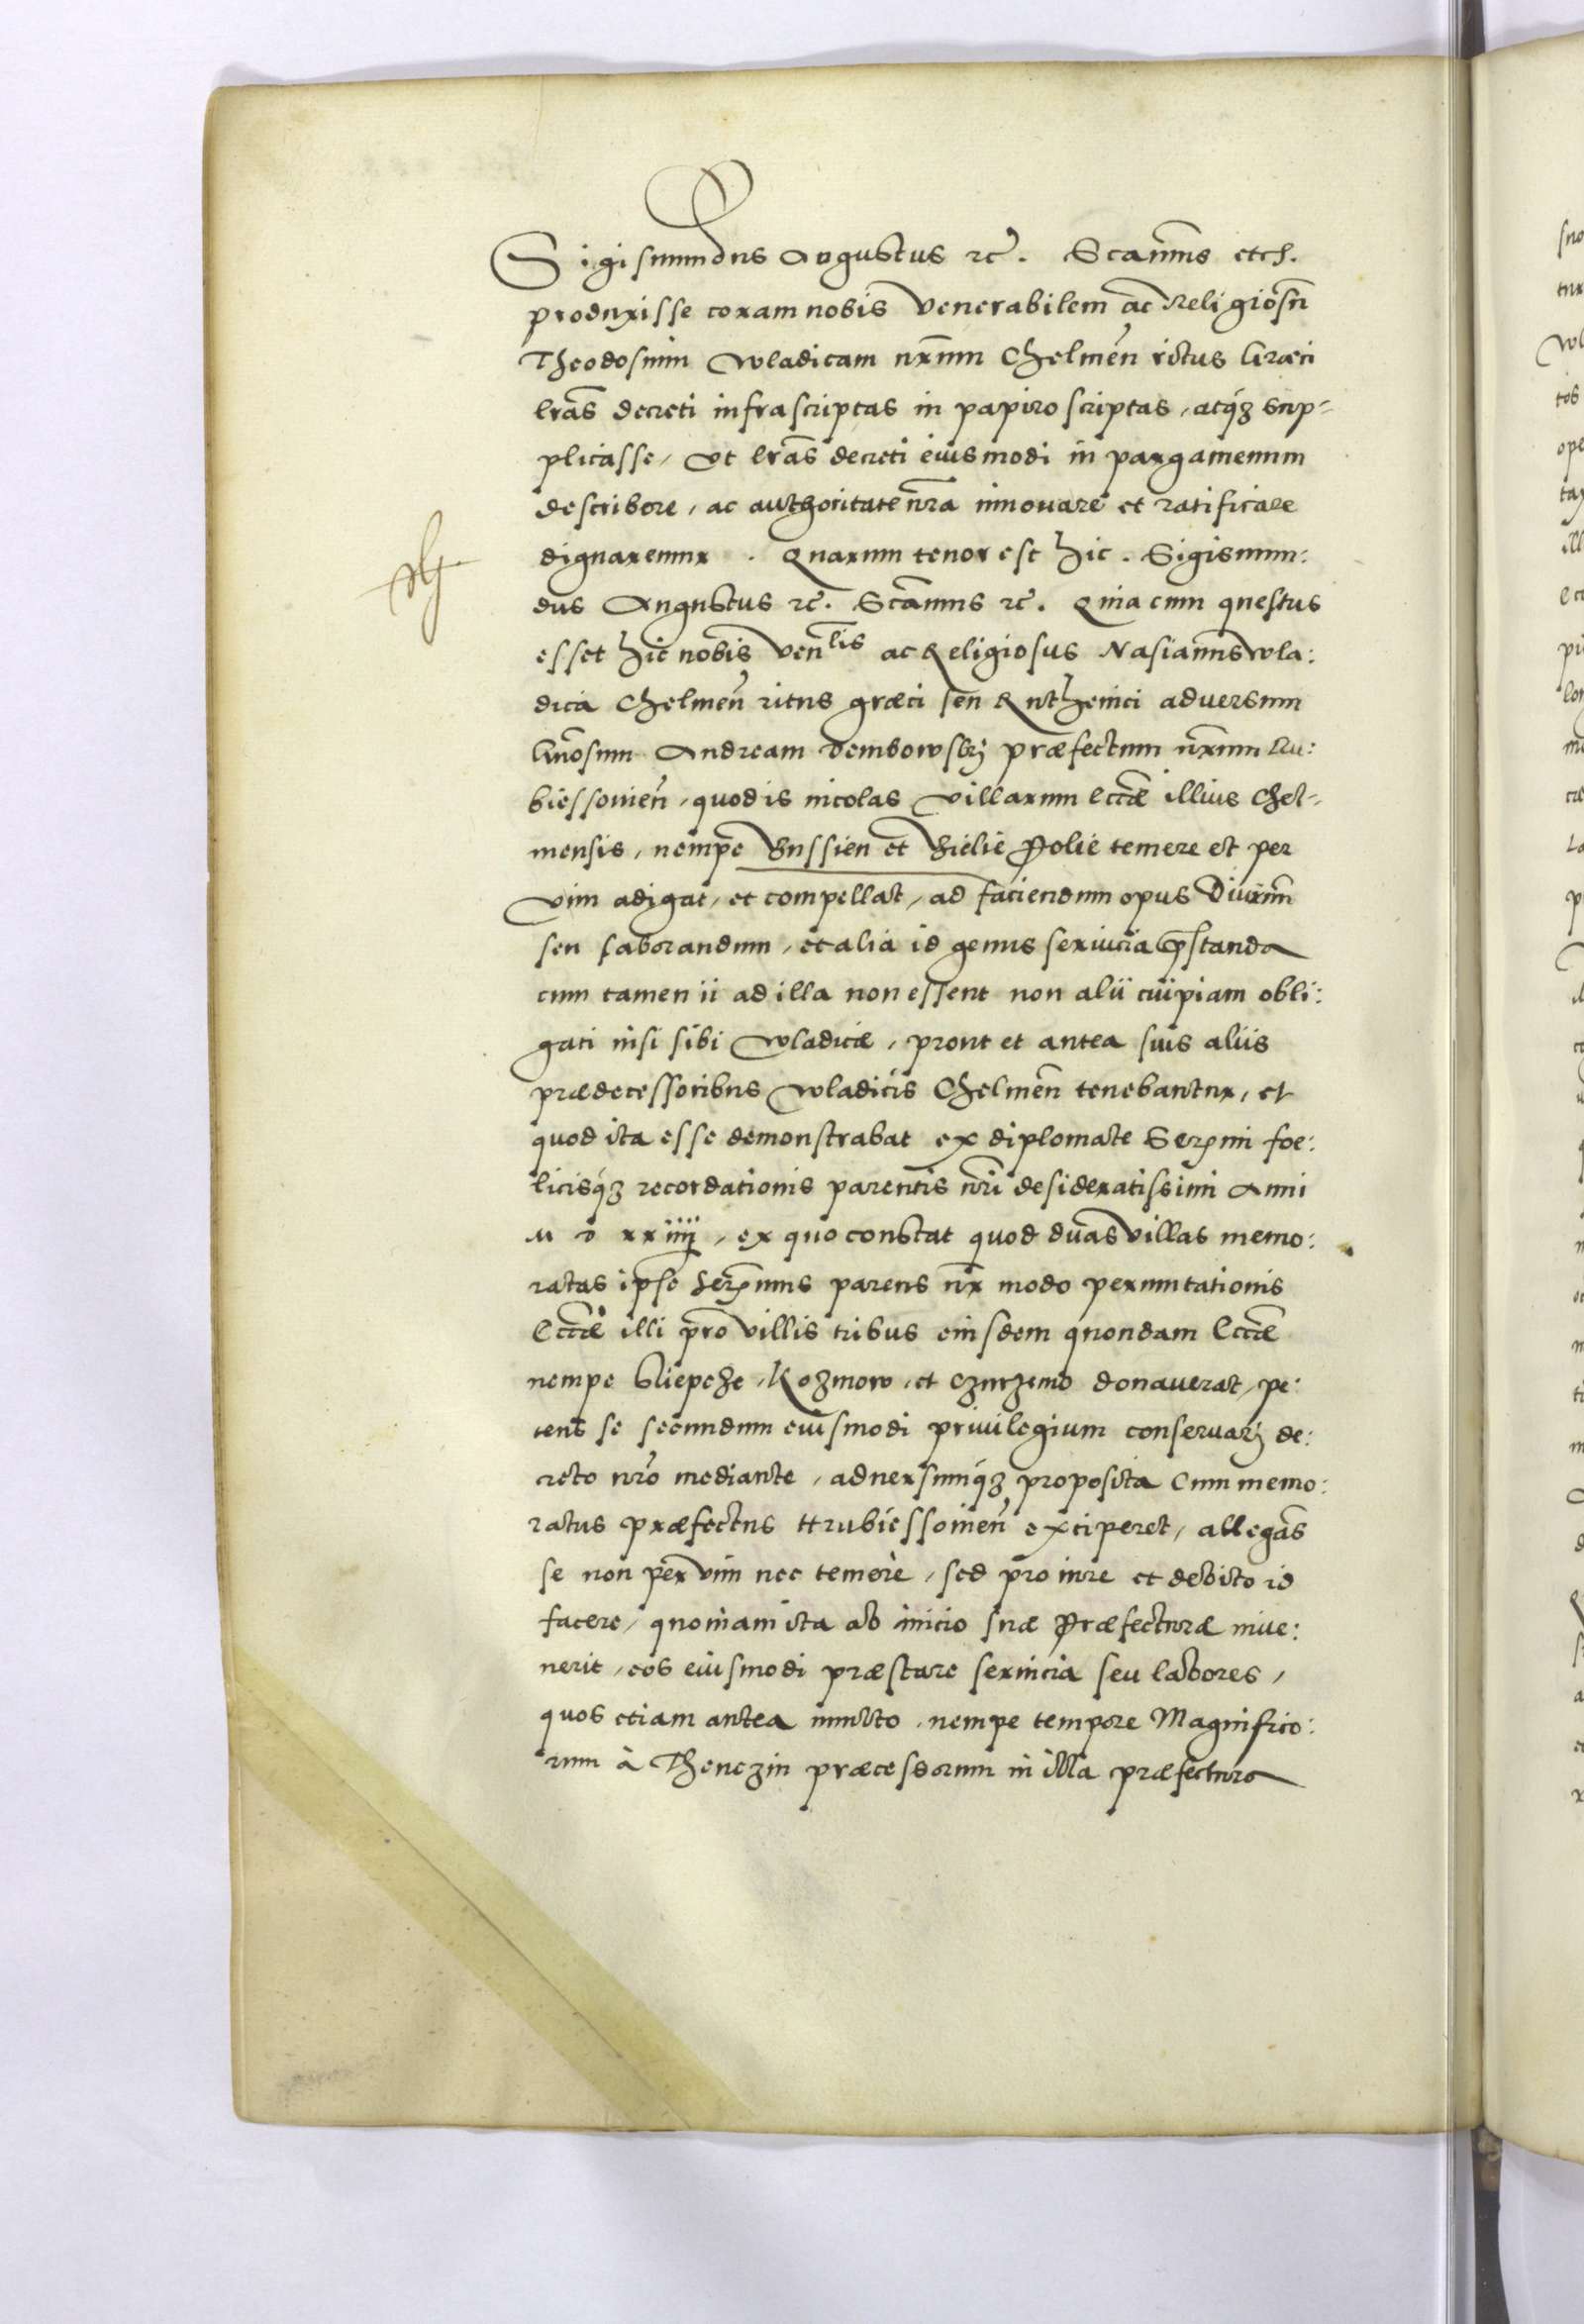 Sigismundus Augustus etc. Scanms etch.
produxisse coram nobis Venerabilem ac Religiosn
Theodosium Wladicam nrnm Chelmen ritus Græci
lras decreti infrascriptas in papiro scriptas, atq3 sup-
plicasse, Vt lras decreti eiusmodi in pargamenum
describere, ac authoritate nra innouare et ratificare
dignaremur. Quarum tenor est hic. Sigismun:
dus Augustus etc. Scanms etc. Quia cum questus
esset hic nobis Venlis ac Religiosus Nasianus wla:
dica Chelmen ritus græci seu Ruthenici aduersum
Gnosum Andream Dembowskj præfectum nrum Ru:
biessouien, quod is incolas Villarum Eccæ illius Chel-
mensis, nempe Bussien et Bielie Polie temere et per
Vim adigat, et compellat, ad faciendum opus Diurnm
seu laborandum, et alia id genus seruicia prstanda
cum tamen ii ad illa non essent non alii cuipiam obli:
gati nisi sibi Wladicæ, prout et antea suis aliis
prædecessoribus Wladicis Chelmen tenebantur, et
quod ita esse demonstrabat ex diplomate Sermi foe:
licisq3 recordationis parentis nri desideratissimi Anni
M D xxiiij, ex quo constat quod duas Villas memo:
ratas ipse Sermus parens nr modo permutationis
Eccæ illi pro Villis tribus eiusdem quondam Eccæ
nempe Sliepcze, Kozmow, et Czurzemo donauerat, pe:
tens se secundum eiusmodi priuilegium conseruarj de:
creto nro mediante, aduersumq3 proposita Cum memo:
ratus præfectus Hrubiessouien exciperet, allegas
se non per vim nec temerè, sed pro iure et debito id
facere, quoniam ita ab inicio suæ Præfecturæ inue:
nerit, eos eiusmodi præstare seruicia seu labores,
quos etiam antea multo, nempe tempore Magnifico:
rum à Thenczin præcessorum in illa præfectura